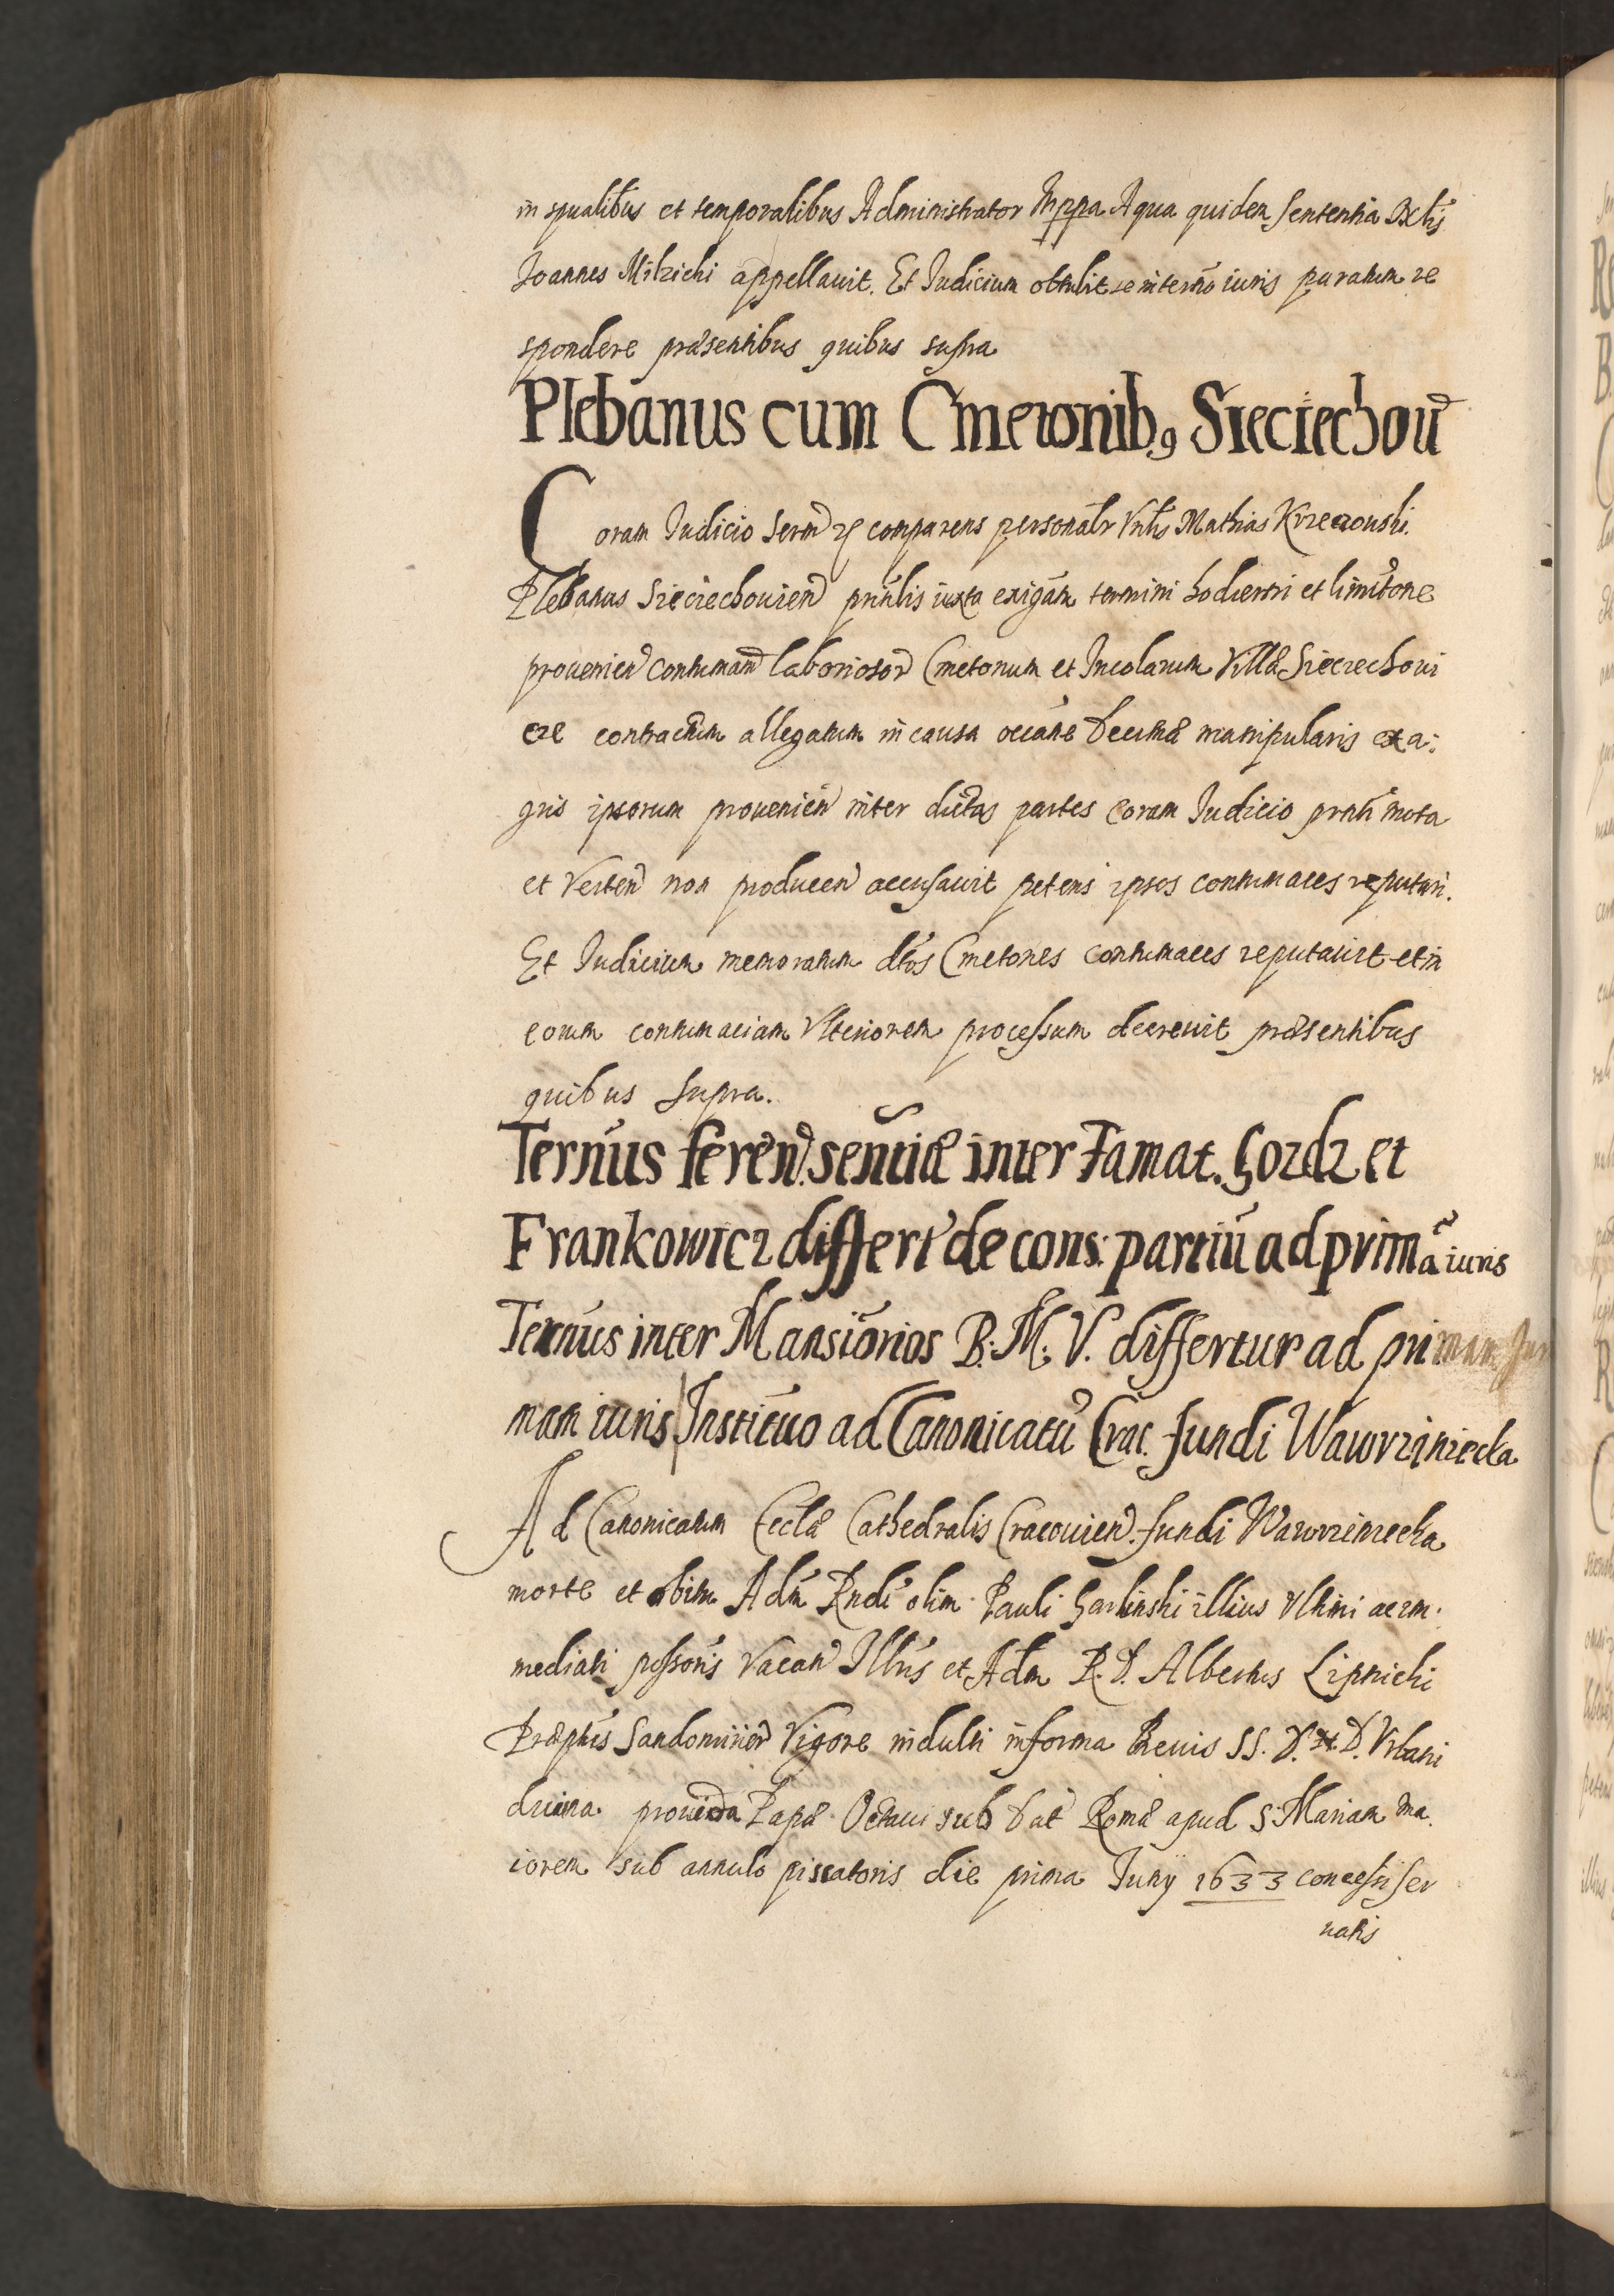 in spualibus et temporalibus Administrator mppa. A qua quidem sententia
Joannes Milzicki appellavit. Et Judicium obtulit se in termo iuris paratum re
spondere præsentibus quibus supra
Plebanus cum Cmetonibq Sieciechouˉ
Coram Judicio Serm comparens personalr Vnlis Mathias Krzeczouski
Plebanus Sieciechouien pnnlis iuxta exigam termini hodierni et limitone
prouenien contumam laboriosor Cmetonum et Incolarum Villæ Sieciechoui
cze contractum allegatum in causa occane Decimæ manipularis ex a:
gris ipsorum prouenien inter dictas partes coram Judicio prnti mota
et Verten non producen accusauit petens ipsos contumaces reputari.
Et Judicium memoratum dtos Cmetones contumaces reputauit et in
eorum contumaciam Vlteriorem processum decreuit præsentibus
quibus supra.
Ternus feren. sentiæ inter Famat. Gozdz et
Frankowicz differt de cons: partiu ad prima iuris
Ternus inter Mansionios B. M. V. differtur ad primam Jur
mam iuris Institutio ad Canonicatu Crac. fundi Wawrziniecka
Ad Canonicatum Ecclæ Cathedralis Cracouien. fundi Wawrziniecka
morte et obitu Adm Rndi olim Pauli Garlinski illius Vltimi ac im.
mediati possoris Vacan Illris et Adm R. D. Albertus Lipnicki
Præptus Sandomirien Vigore indulti in forma Breuis SS. D. N. D. Vrbani
diuina prouida Papæ Octaui sub Dat Romæ apud S. Mariam Ma
iorem sub annulo piscatoris die prima Junij 1633 concessi ser
uatis